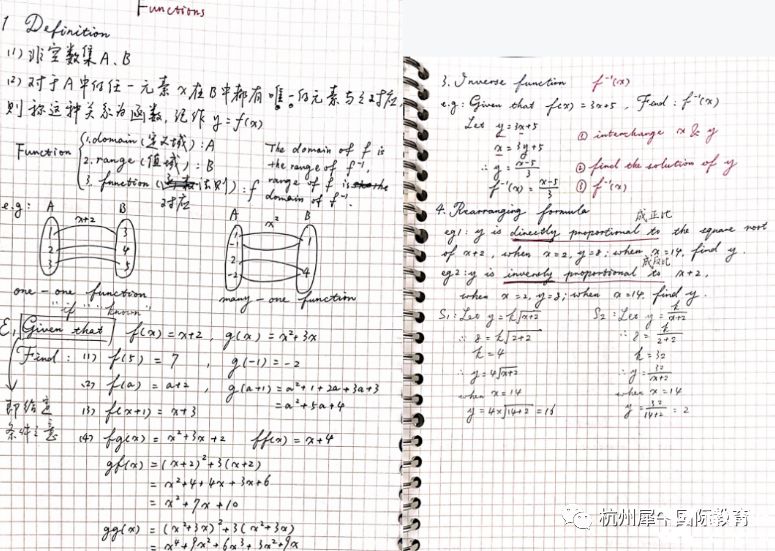 Functions
1 Definition
(1) 非空数集A、B
(2) 对于A中的任一元素x在B中都有唯一的元素与之对应,
则称这种关系为函数,记作 y=f(x)
Function { 1. domain (定义域) : A
2. range (值域) : B
3. function (对应法则) : f
The domain of f is
the range of f⁻¹,
range of f is the
domain of f⁻¹.
e.g: A x+2 B
1 3
2 4
3 5
one-one function
A x² B
1
-1 1
2
-2 4
many-one function
"if" "known"
E. Given that f(x)=x+2, g(x)=x²+3x
Find: (1) f(5)=7, g(-1)=-2
(2) f(a)=a+2, g(a+1)=a²+1+2a+3a+3
=a²+5a+4
(3) f(x+1)=x+3
即给定
条件之意
(4) fg(x)=x²+3x+2 ff(x)=x+4
gf(x)=(x+2)²+3(x+2)
=x²+4+4x+3x+6
=x²+7x+10
gg(x)=(x²+3x)²+3(x²+3x)
=x⁴+9x²+6x³+3x²+9x
3. Inverse function f⁻¹(x)
e.g: Given that f(x)=3x+5, Find: f⁻¹(x)
Let y=3x+5
x=3y+5 ① interchange x & y
∴ y=(x-5)/3 ② find the solution of y
f⁻¹(x)=(x-5)/3 ③ f⁻¹(x)
4. Rearranging formula
成正比
eg1: y is directly proportional to the square root
of x+2, when x=2, y=8; when x=14, find y.
成反比
eg2: y is inversly proportional to x+2,
when x=2, y=8; when x=14, find y.
S₁: Let y=k√x+2
∴ 8=k√2+2
k=4
∴ y=4√x+2
when x=14
y=4×√14+2=16
S₂: Let y=k/(x+2)
∴ 8=k/(2+2)
k=32
∴ y=32/(x+2)
when x=14
y=32/(14+2)=2
杭州犀牛国际教育